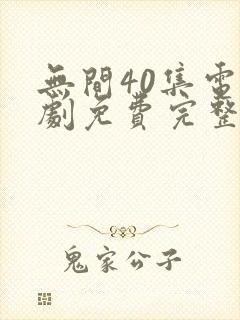 無間40集電
劇免費完整
鬼家公子